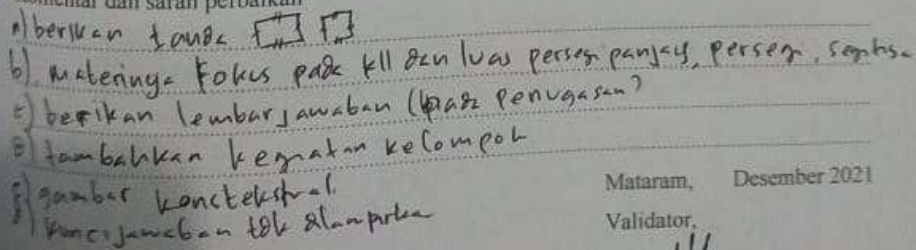 komentar dan saran perbaikan
a) berikan tanda
b). materinya Fokus pada kll dan luas persegi panjang, persegi, segitiga
c) berikan lembar jawaban (pada penugasan)
d) tambahkan kegiatan kelompok
e) gambar konstekstual
f) kunci jawaban tdk dilampirkan
Mataram, Desember 2021
Validator,